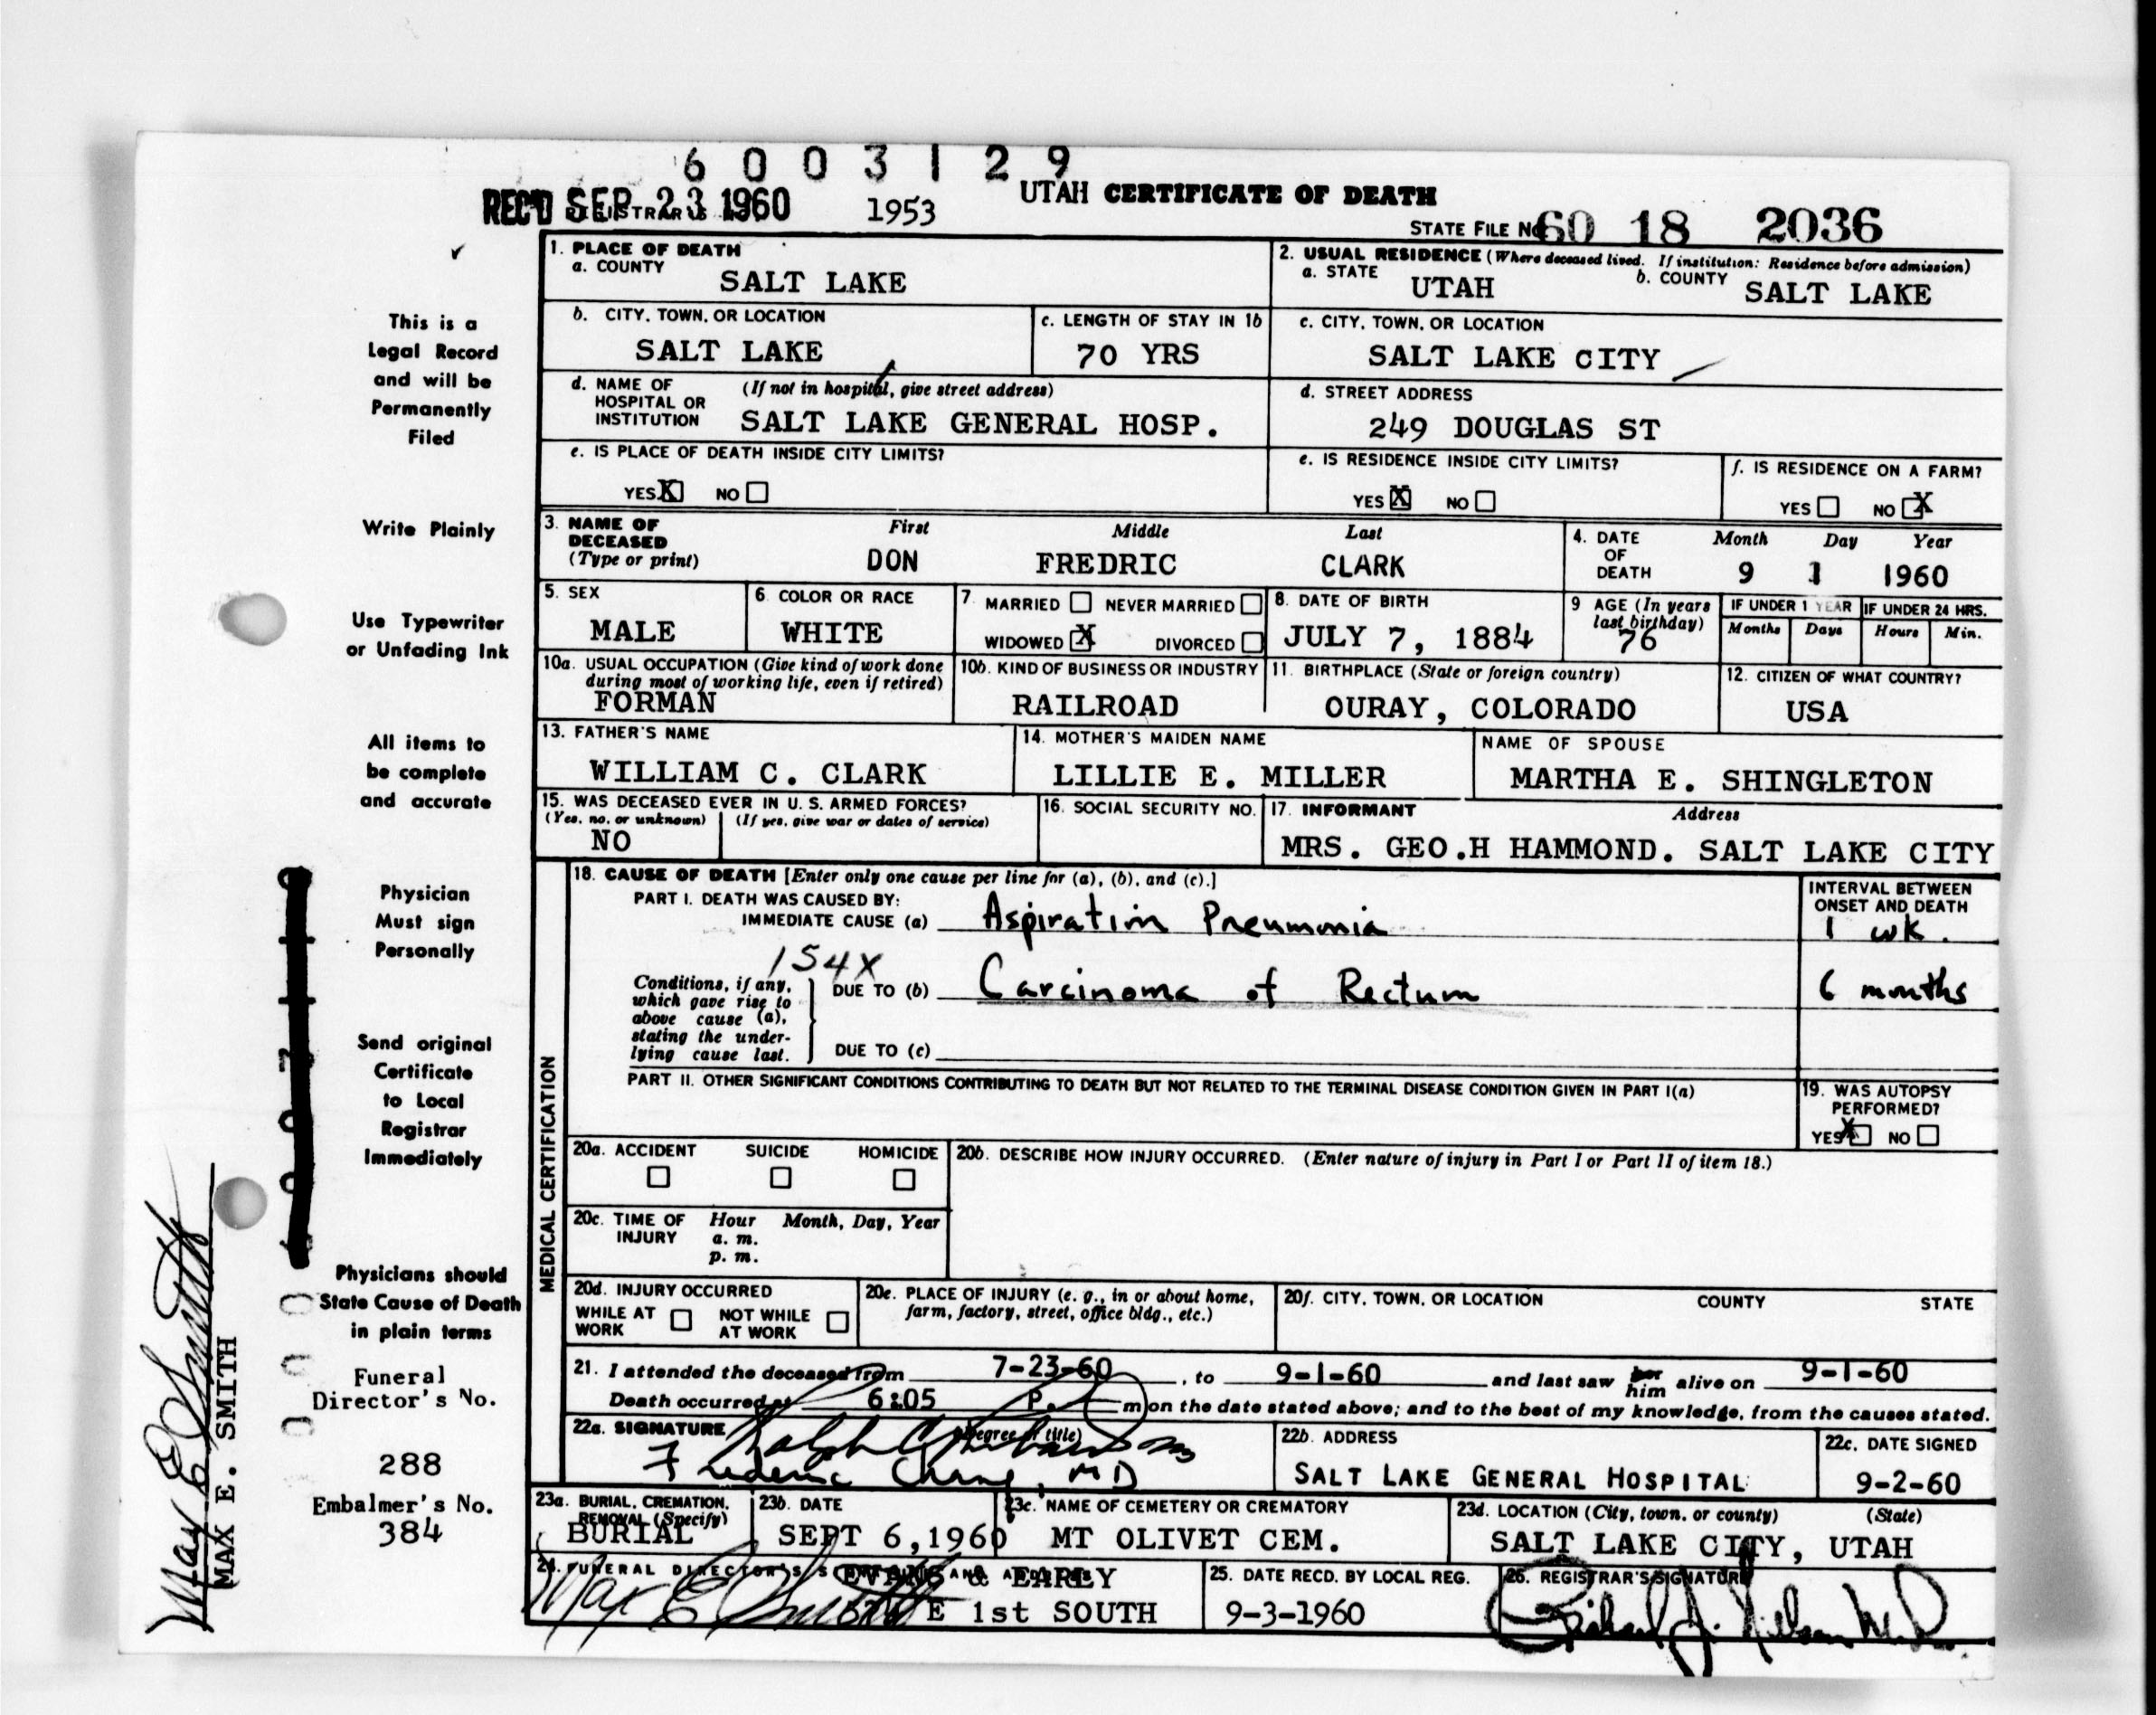 6 0 0 3 1 2 9
REC'D SEP 23 1960
REGISTRAR'S
1953
UTAH CERTIFICATE OF DEATH
STATE FILE No. 60 18 2036
1. PLACE OF DEATH
a. COUNTY
SALT LAKE
2. USUAL RESIDENCE (Where deceased lived. If institution: Residence before admission)
a. STATE
UTAH
b. COUNTY
SALT LAKE
b. CITY, TOWN, OR LOCATION
SALT LAKE
c. LENGTH OF STAY IN 1b
70 YRS
c. CITY, TOWN, OR LOCATION
SALT LAKE CITY
d. NAME OF HOSPITAL OR INSTITUTION
(If not in hospital, give street address)
SALT LAKE GENERAL HOSP.
d. STREET ADDRESS
249 DOUGLAS ST
e. IS PLACE OF DEATH INSIDE CITY LIMITS?
YES X NO
e. IS RESIDENCE INSIDE CITY LIMITS?
YES X NO
f. IS RESIDENCE ON A FARM?
YES NO X
3. NAME OF DECEASED
(Type or print)
First Middle Last
DON FREDRIC CLARK
4. DATE OF DEATH
Month Day Year
9 1 1960
5. SEX
MALE
6. COLOR OR RACE
WHITE
7. MARRIED NEVER MARRIED
WIDOWED X DIVORCED
8. DATE OF BIRTH
JULY 7, 1884
9 AGE (In years last birthday)
76
IF UNDER 1 YEAR
Months Days
IF UNDER 24 HRS.
Hours Min.
10a. USUAL OCCUPATION (Give kind of work done during most of working life, even if retired)
FORMAN
10b. KIND OF BUSINESS OR INDUSTRY
RAILROAD
11. BIRTHPLACE (State or foreign country)
OURAY, COLORADO
12. CITIZEN OF WHAT COUNTRY?
USA
13. FATHER'S NAME
WILLIAM C. CLARK
14. MOTHER'S MAIDEN NAME
LILLIE E. MILLER
NAME OF SPOUSE
MARTHA E. SHINGLETON
15. WAS DECEASED EVER IN U. S. ARMED FORCES?
(Yes, no, or unknown) (If yes, give war or dates of service)
NO
16. SOCIAL SECURITY NO.
17. INFORMANT Address
MRS. GEO.H HAMMOND. SALT LAKE CITY
MEDICAL CERTIFICATION
18. CAUSE OF DEATH [Enter only one cause per line for (a), (b), and (c).]
PART I. DEATH WAS CAUSED BY:
IMMEDIATE CAUSE (a) Aspiration Pneumonia
INTERVAL BETWEEN ONSET AND DEATH
1 wk.
154X
Conditions, if any, which gave rise to above cause (a), stating the underlying cause last.
DUE TO (b) Carcinoma of Rectum
6 months
DUE TO (c)
PART II. OTHER SIGNIFICANT CONDITIONS CONTRIBUTING TO DEATH BUT NOT RELATED TO THE TERMINAL DISEASE CONDITION GIVEN IN PART I(a)
19. WAS AUTOPSY PERFORMED?
YES X NO
20a. ACCIDENT SUICIDE HOMICIDE
20b. DESCRIBE HOW INJURY OCCURRED. (Enter nature of injury in Part I or Part II of item 18.)
20c. TIME OF INJURY
Hour Month, Day, Year
a. m.
p. m.
20d. INJURY OCCURRED
WHILE AT WORK NOT WHILE AT WORK
20e. PLACE OF INJURY (e. g., in or about home, farm, factory, street, office bldg., etc.)
20f. CITY, TOWN, OR LOCATION COUNTY STATE
21. I attended the deceased from 7-23-60, to 9-1-60 and last saw her him alive on 9-1-60
Death occurred at 6:05 P. m on the date stated above; and to the best of my knowledge, from the causes stated.
22a. SIGNATURE (Degree or title)
Ralph
Frederic Chang, MD
22b. ADDRESS
SALT LAKE GENERAL HOSPITAL
22c. DATE SIGNED
9-2-60
23a. BURIAL, CREMATION, REMOVAL (Specify)
BURIAL
23b. DATE
SEPT 6,1960
23c. NAME OF CEMETERY OR CREMATORY
MT OLIVET CEM.
23d. LOCATION (City, town, or county) (State)
SALT LAKE CITY, UTAH
24. FUNERAL DIRECTOR'S
EVANS & EARLY
E 1st SOUTH
Max E Smith
25. DATE RECD. BY LOCAL REG.
9-3-1960
26. REGISTRAR'S SIGNATURE
This is a
Legal Record
and will be
Permanently
Filed
Write Plainly
Use Typewriter
or Unfading Ink
All items to
be complete
and accurate
Physician
Must sign
Personally
Send original
Certificate
to Local
Registrar
Immediately
Physicians should
State Cause of Death
in plain terms
Funeral
Director's No.
288
Embalmer's No.
384
Max E Smith
MAX E. SMITH